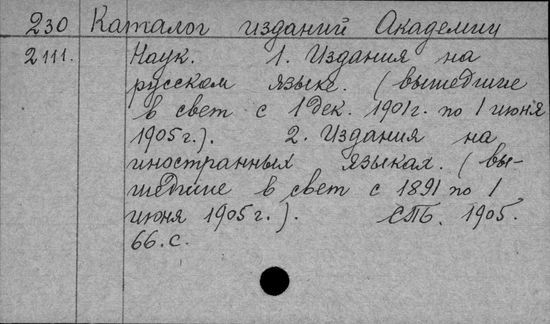 230 Каталог изданий Академии
2111. Наук. 1. Издания на
русском языке. (вышедшие
в свет с 1 дек. 1901г. по 1 июня
1905г.). 2. Издания на
иностранных языках. (вы-
шедшие в свет с 1891 по 1
июня 1905г.). СПб. 1905.
66.с.